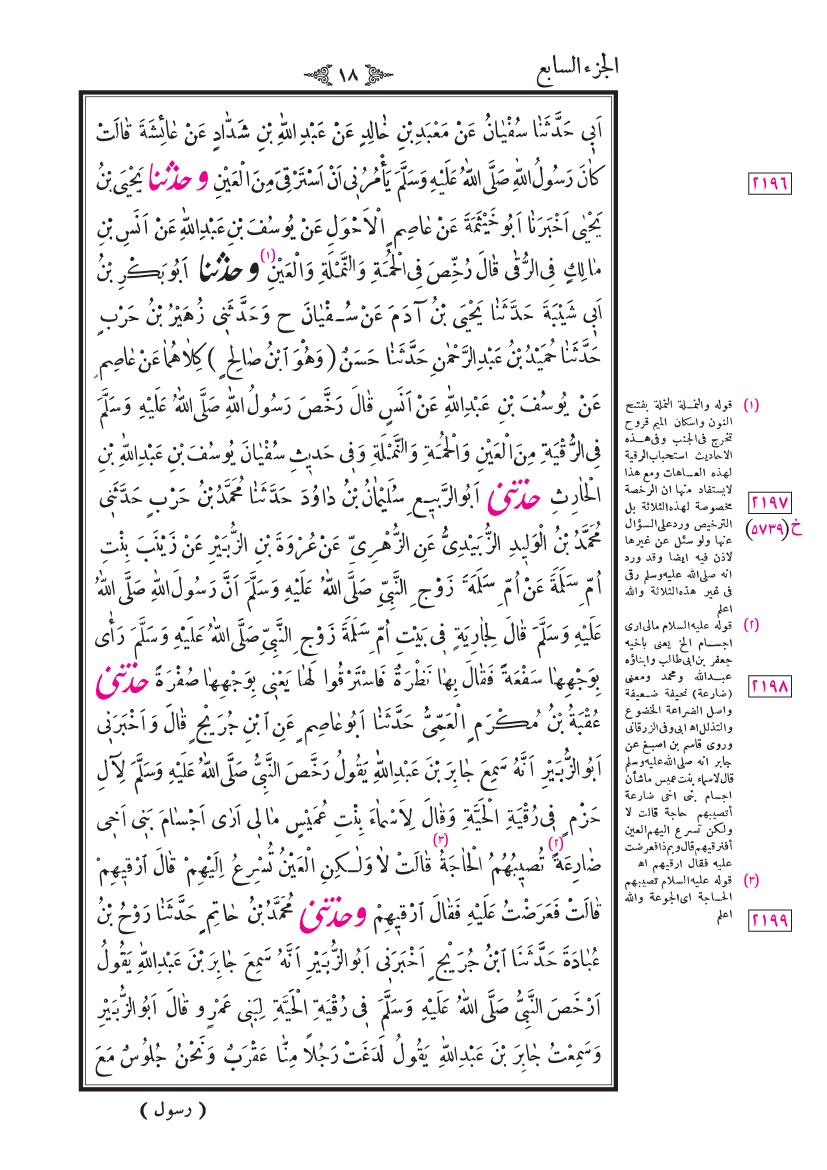 الجزء السابع
١٨
اَبِى حَدَّثَنَا سُفْيَانُ عَنْ مَعْبَدِبْنِ خَالِدٍ عَنْ عَبْدِاللّٰهِ بْنِ شَدَّادٍ عَنْ عَائِشَةَ قَالَتْ
كَانَ رَسُولُ اللّٰهِ صَلَّى اللّٰهُ عَلَيْهِ وَسَلَّمَ يَأْمُرُنِى اَنْ اَسْتَرْقِىَ مِنَ الْعَيْنِ وحدثنا يَحْيَى بْنُ
يَحْيٰى اَخْبَرَنَا اَبُوخَيْثَمَةَ عَنْ عَاصِمٍ الْاَحْوَلِ عَنْ يُوسُفَ بْنِ عَبْدِاللّٰهِ عَنْ اَنَسِ بْنِ
مَالِكٍ فِى الرُّقٰى قَالَ رُخِّصَ فِى الْحُمَةِ وَالنَّمْلَةِ وَالْعَيْنِ(١) وحدثنا اَبُوبَكْرِ بْنُ
اَبِى شَيْبَةَ حَدَّثَنَا يَحْيَى بْنُ آدَمَ عَنْ سُفْيَانَ ح وَحَدَّثَنِى زُهَيْرُ بْنُ حَرْبٍ
حَدَّثَنَا حُمَيْدُ بْنُ عَبْدِالرَّحْمٰنِ حَدَّثَنَا حَسَنٌ (وَهُوَ ابْنُ صَالِحٍ) كِلَاهُمَا عَنْ عَاصِمٍ
عَنْ يُوسُفَ بْنِ عَبْدِاللّٰهِ عَنْ اَنَسٍ قَالَ رَخَّصَ رَسُولُ اللّٰهِ صَلَّى اللّٰهُ عَلَيْهِ وَسَلَّمَ
فِى الرُّقْيَةِ مِنَ الْعَيْنِ وَالْحُمَةِ وَالنَّمْلَةِ وَفِى حَدِيثِ سُفْيَانَ يُوسُفَ بْنِ عَبْدِاللّٰهِ بْنِ
الْحَارِثِ حدثنى اَبُوالرَّبِيعِ سُلَيْمَانُ بْنُ دَاوُدَ حَدَّثَنَا مُحَمَّدُ بْنُ حَرْبٍ حَدَّثَنِى
مُحَمَّدُ بْنُ الْوَلِيدِ الزُّبَيْدِىُّ عَنِ الزُّهْرِىِّ عَنْ عُرْوَةَ بْنِ الزُّبَيْرِ عَنْ زَيْنَبَ بِنْتِ
اُمِّ سَلَمَةَ عَنْ اُمِّ سَلَمَةَ زَوْجِ النَّبِىِّ صَلَّى اللّٰهُ عَلَيْهِ وَسَلَّمَ اَنَّ رَسُولَ اللّٰهِ صَلَّى اللّٰهُ
عَلَيْهِ وَسَلَّمَ قَالَ لِجَارِيَةٍ فِى بَيْتِ اُمِّ سَلَمَةَ زَوْجِ النَّبِىِّ صَلَّى اللّٰهُ عَلَيْهِ وَسَلَّمَ رَأٰى
بِوَجْهِهَا سَفْعَةً فَقَالَ بِهَا نَظْرَةٌ فَاسْتَرْقُوا لَهَا يَعْنِى بِوَجْهِهَا صُفْرَةً حدثنى
عُقْبَةُ بْنُ مُكْرَمٍ الْعَمِّىُّ حَدَّثَنَا اَبُوعَاصِمٍ عَنِ ابْنِ جُرَيْجٍ قَالَ وَاَخْبَرَنِى
اَبُوالزُّبَيْرِ اَنَّهُ سَمِعَ جَابِرَ بْنَ عَبْدِاللّٰهِ يَقُولُ رَخَّصَ النَّبِىُّ صَلَّى اللّٰهُ عَلَيْهِ وَسَلَّمَ لِآلِ
حَزْمٍ فِى رُقْيَةِ الْحَيَّةِ وَقَالَ لِاَسْمَاءَ بِنْتِ عُمَيْسٍ مَالِى اَرٰى اَجْسَامَ بَنِى اَخِى
ضَارِعَةً(٢) تُصِيبُهُمُ الْحَاجَةُ(٣) قَالَتْ لَا وَلٰكِنِ الْعَيْنُ تُسْرِعُ اِلَيْهِمْ قَالَ ارْقِيهِمْ
قَالَتْ فَعَرَضْتُ عَلَيْهِ فَقَالَ ارْقِيهِمْ وحدثنى مُحَمَّدُ بْنُ حَاتِمٍ حَدَّثَنَا رَوْحُ بْنُ
عُبَادَةَ حَدَّثَنَا ابْنُ جُرَيْجٍ اَخْبَرَنِى اَبُوالزُّبَيْرِ اَنَّهُ سَمِعَ جَابِرَ بْنَ عَبْدِاللّٰهِ يَقُولُ
اَرْخَصَ النَّبِىُّ صَلَّى اللّٰهُ عَلَيْهِ وَسَلَّمَ فِى رُقْيَةِ الْحَيَّةِ لِبَنِى عَمْرٍو قَالَ اَبُوالزُّبَيْرِ
وَسَمِعْتُ جَابِرَ بْنَ عَبْدِاللّٰهِ يَقُولُ لَدَغَتْ رَجُلًا مِنَّا عَقْرَبٌ وَنَحْنُ جُلُوسٌ مَعَ
( رسول )
٢١٩٦
٢١٩٧
خ(٥٧٣٩)
٢١٩٨
٢١٩٩
(١) قوله والنملة النملة بفتح
النون واسكان الميم قروح
تخرج فى الجنب وفى هذه
الاحاديث استحباب الرقية
لهذه العاهات ومع هذا
لايستفاد منها ان الرخصة
مخصوصة لهذه الثلاثة بل
الترخيص ورد على السؤال
عنها ولو سئل عن غيرها
لاذن فيه ايضا وقد ورد
انه صلى الله عليه وسلم رقى
فى غير هذه الثلاثة والله
اعلم
(٢) قوله عليه السلام مالى ارى
اجسام الخ يعنى باخيه
جعفر بن ابى طالب وابناؤه
عبدالله ومحمد ومعنى
(ضارعة) نحيفة ضعيفة
واصل الضراعة الخضوع
والتذلل اه ابى وفى الزرقانى
وروى قاسم بن اصبغ عن
جابر انه صلى الله عليه وسلم
قال لاسماء بنت عميس ماشأن
اجسام بنى اخى ضارعة
أتصيبهم حاجة قالت لا
ولكن تسرع اليهم العين
أفنرقيهم قال وبم ذا فعرضت
عليه فقال ارقيهم اه
(٣) قوله عليه السلام تصيبهم
الحاجة اى الجوعة والله
اعلم